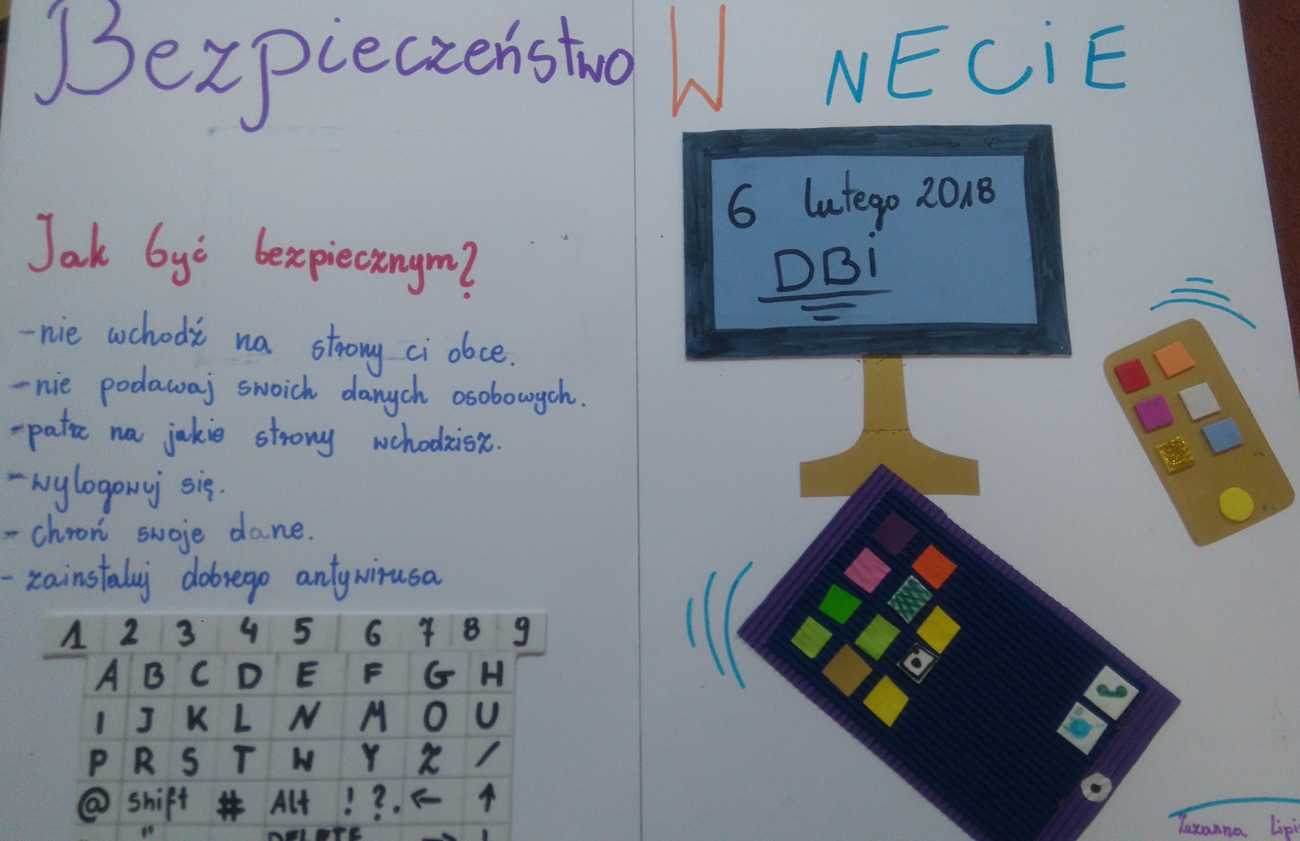 Bezpieczeństwo W NECiE
Jak być bezpiecznym?
-nie wchodź na strony ci obce.
-nie podawaj swoich danych osobowych.
-patrz na jakie strony wchodzisz.
-wylogowuj się.
- chroń swoje dane.
- zainstaluj dobrego antywirusa
1 2 3 4 5 6 7 8 9
A B C D E F G H
I J K L N M O U
P R S T W Y Z /
@ Shift # Alt ! ? . ← ↑
" DELETE →
6 lutego 2018
DBi
Zuzanna